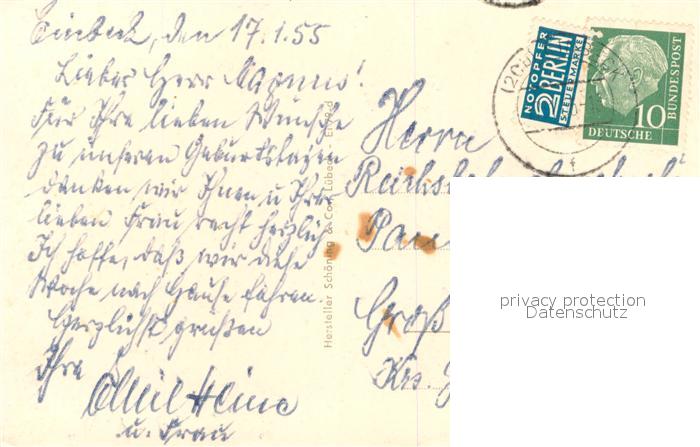 Einbeck, den 17.1.55
Lieber Herr
Für Ihre lieben Wünsche
zu unseren Geburtstagen
danken wir Ihnen u Ihrer
lieben Frau recht herzlich
Ich hoffe, daß wir diese
Woche nach Hause fahren.
Herzlichst grüßen
Ihre
Emil Heine
u. Frau
Hersteller Schöning & Co., Lübeck
NOTOPFER
2 BERLIN
STEUERMARKE
DEUTSCHE
BUNDESPOST
10
Herrn
Groß
Krs.
privacy protection
Datenschutz